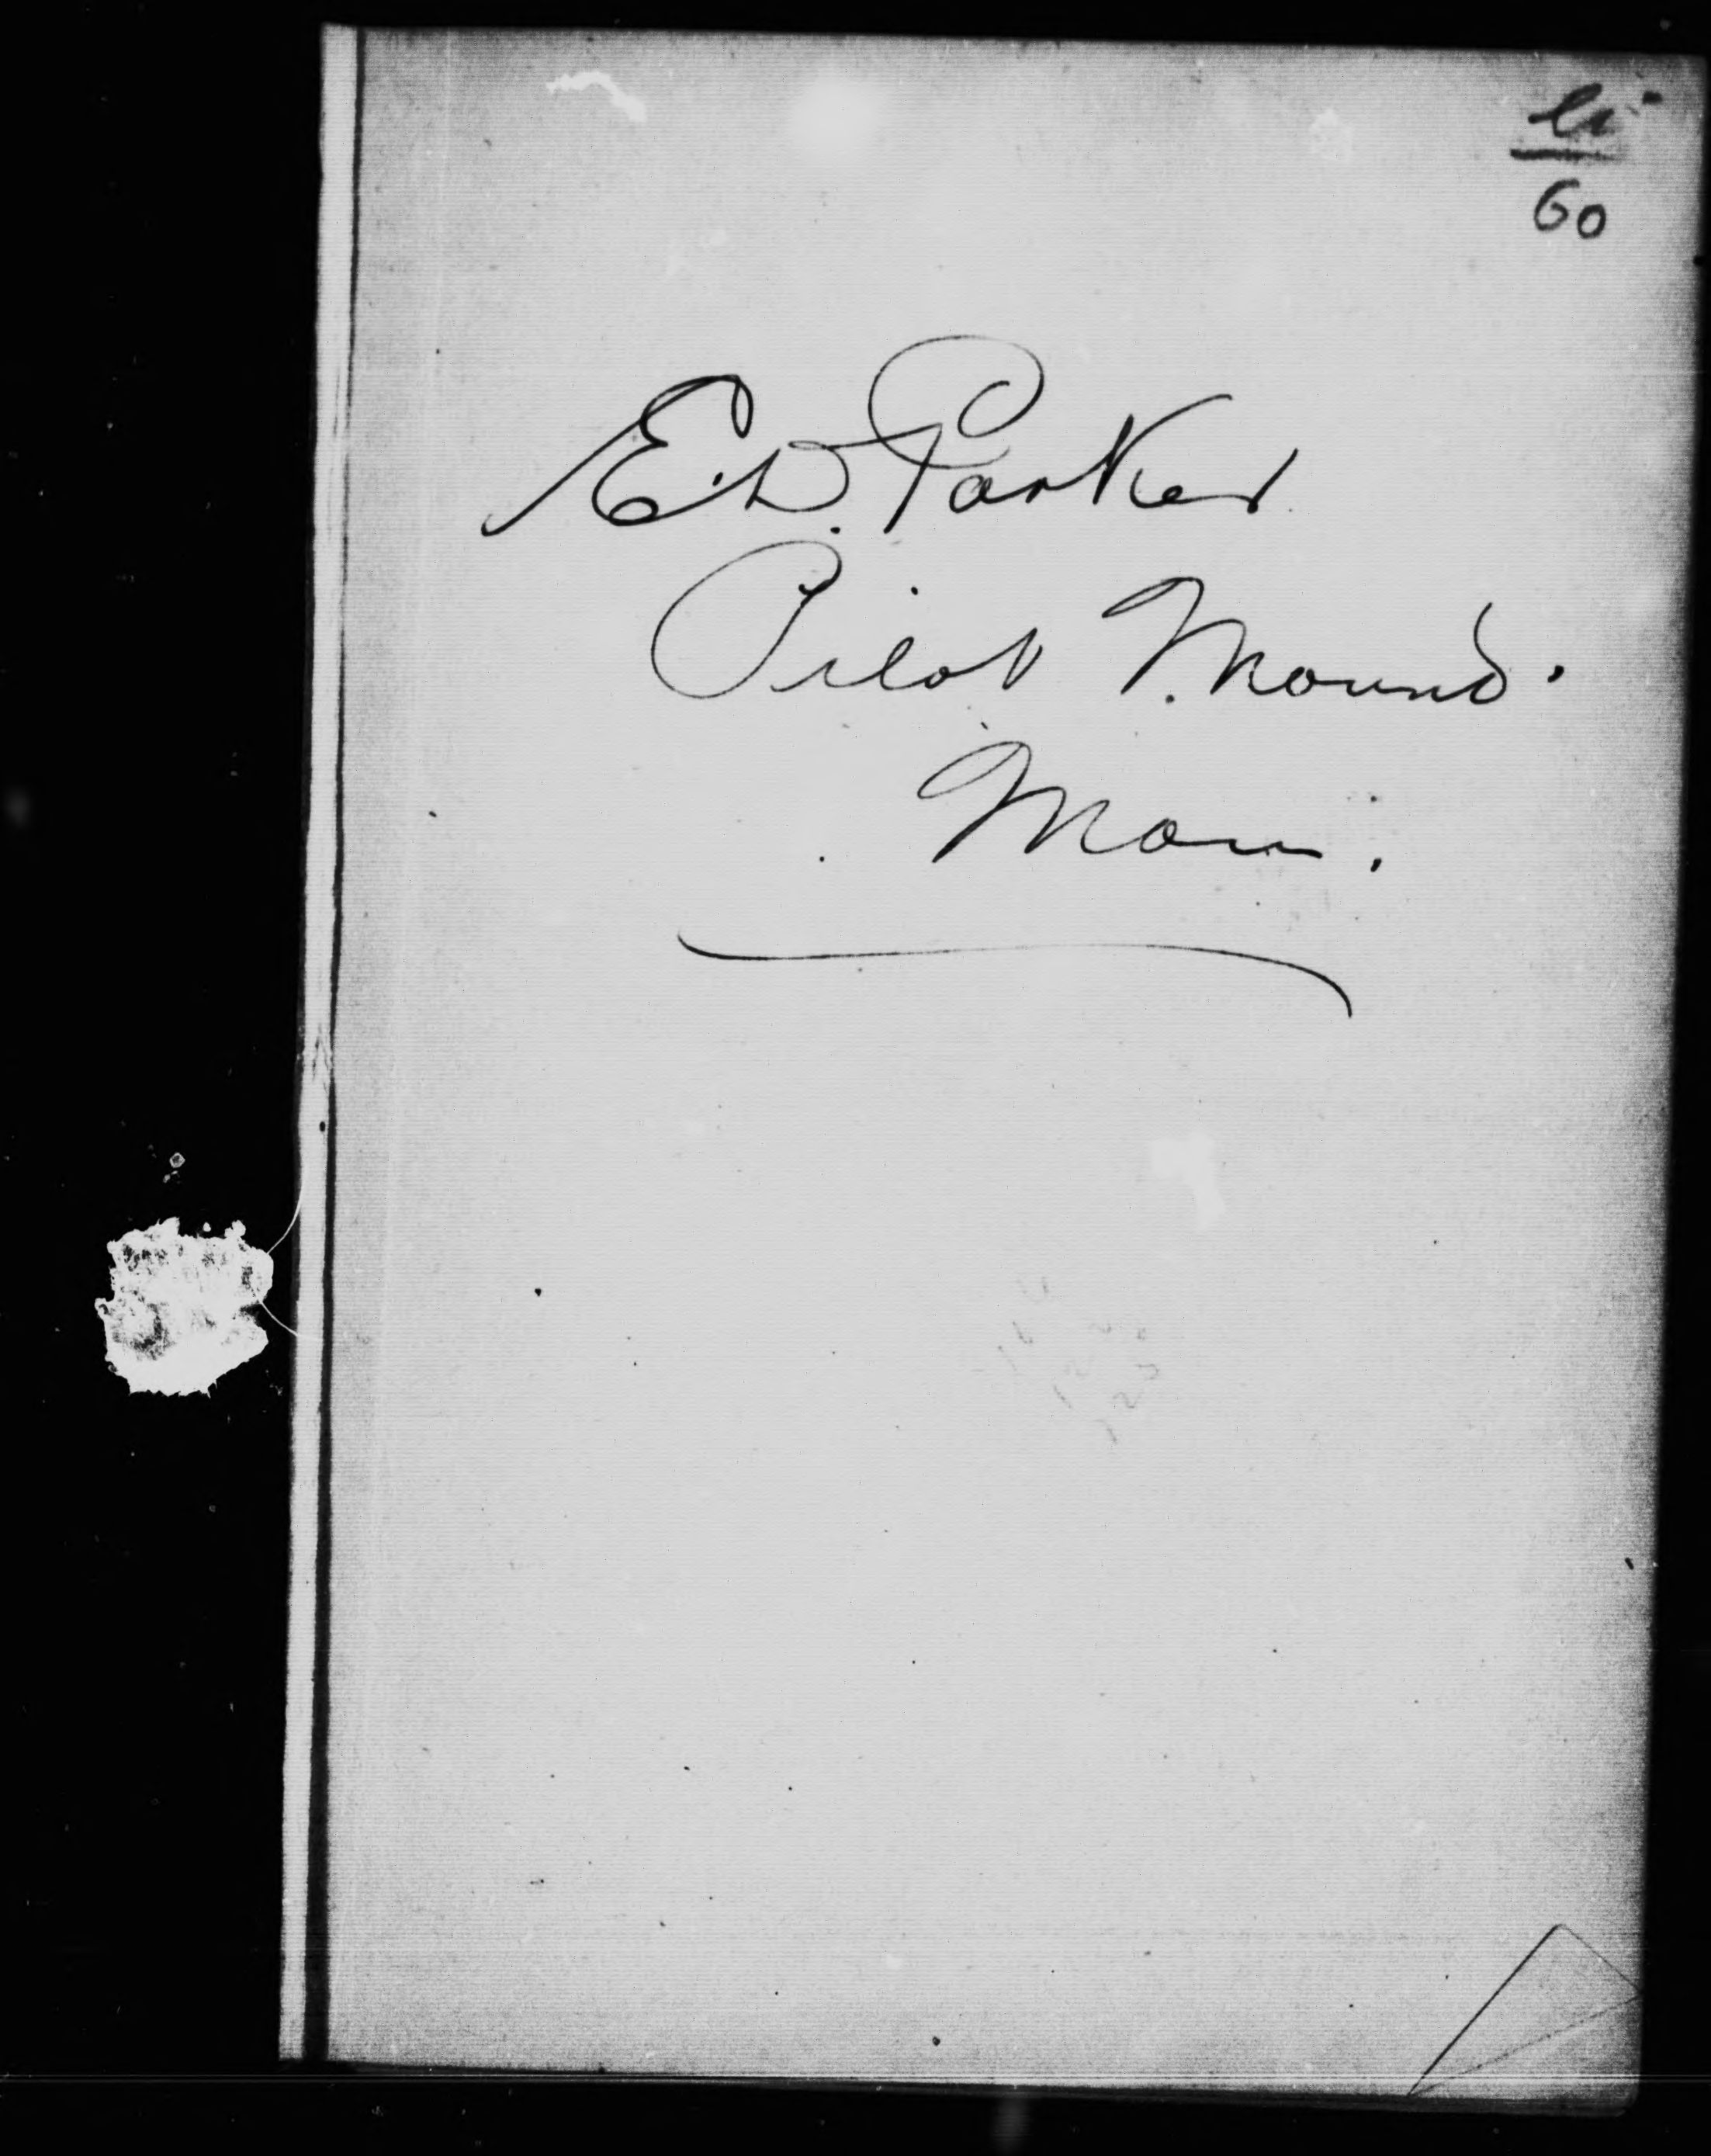 60
E.D. Parker
Pilot Mound.
Man.